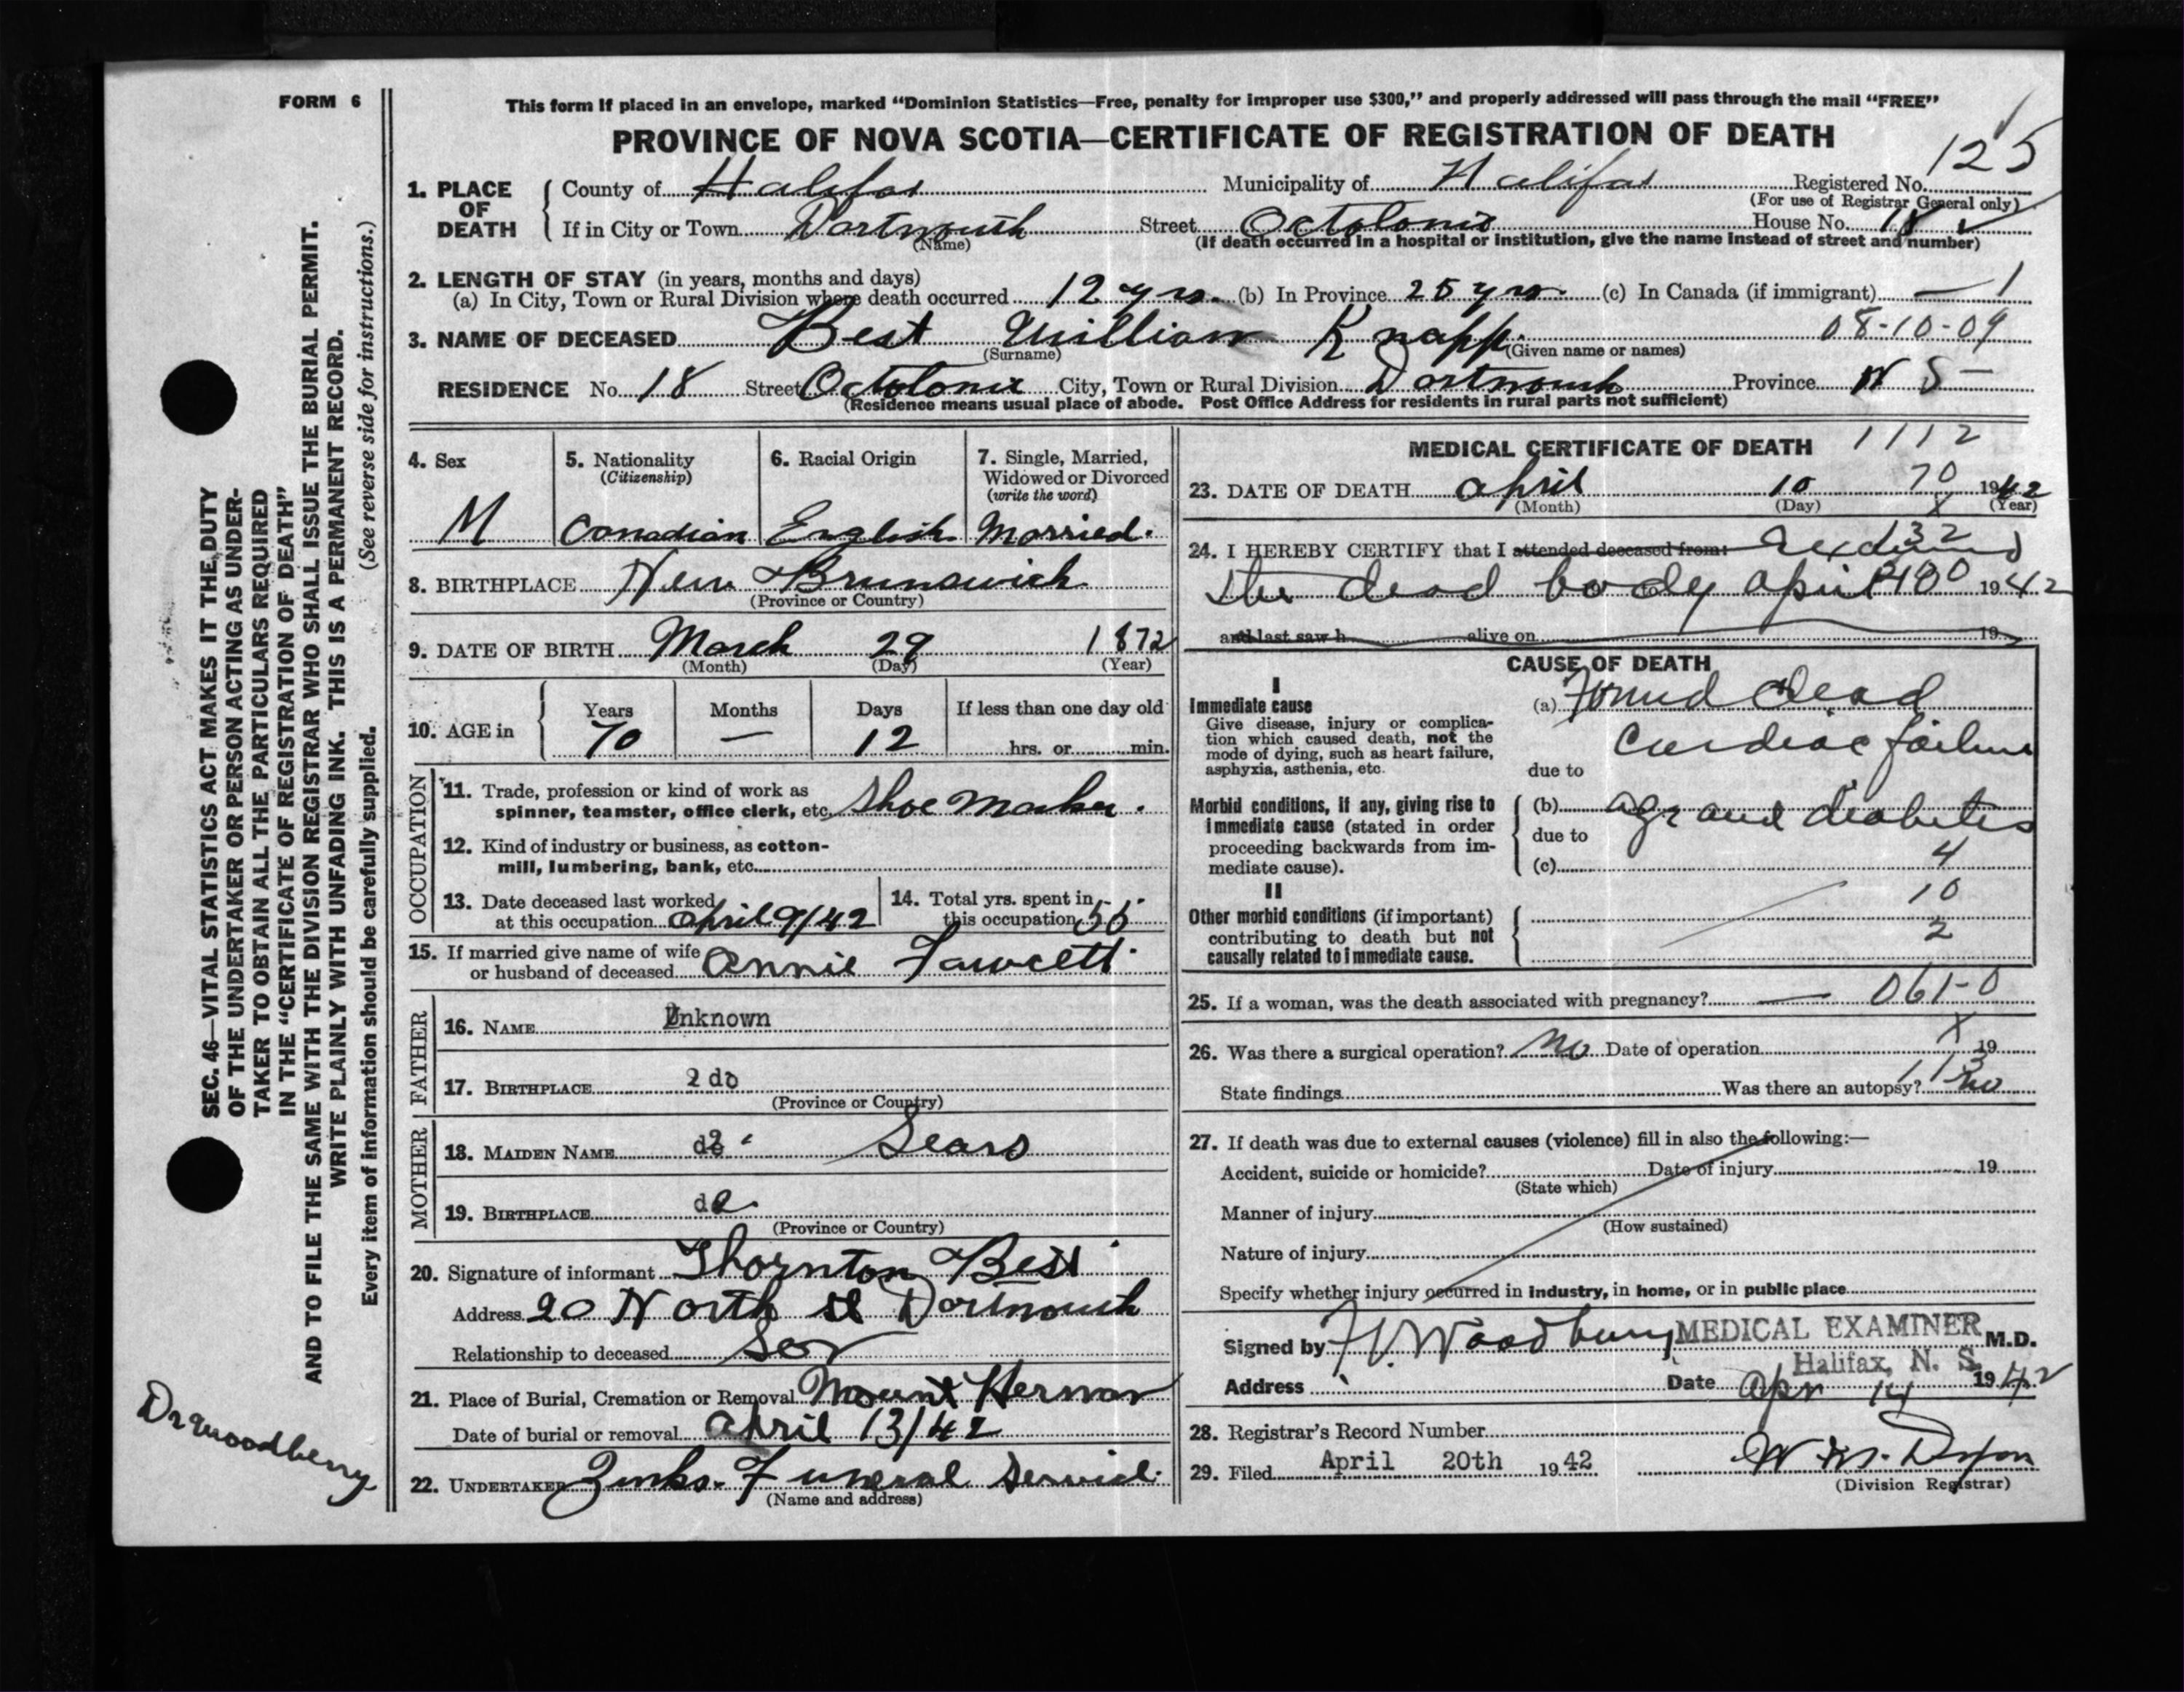 FORM 6
This form if placed in an envelope, marked "Dominion Statistics—Free, penalty for improper use $300," and properly addressed will pass through the mail "FREE"
PROVINCE OF NOVA SCOTIA—CERTIFICATE OF REGISTRATION OF DEATH
125
1. PLACE OF DEATH
County of Halifax Municipality of Halifax Registered No.
(For use of Registrar General only)
If in City or Town Dartmouth Street House No. 18
(Name) (If death occurred in a hospital or institution, give the name instead of street and number)
2. LENGTH OF STAY (in years, months and days)
(a) In City, Town or Rural Division where death occurred 12 yrs. (b) In Province 25 yrs. (c) In Canada (if immigrant) — 1
3. NAME OF DECEASED Best William Knapp. 08-10-09
(Surname) (Given name or names)
RESIDENCE No. 18 Street City, Town or Rural Division Dartmouth Province N S —
(Residence means usual place of abode. Post Office Address for residents in rural parts not sufficient)
4. Sex
M
5. Nationality
(Citizenship)
Canadian
6. Racial Origin
English
7. Single, Married, Widowed or Divorced
(write the word)
Married.
8. BIRTHPLACE New Brunswick
(Province or Country)
9. DATE OF BIRTH March 29 1872
(Month) (Day) (Year)
10. AGE in Years Months Days If less than one day old
70 — 12 hrs. or min.
OCCUPATION
11. Trade, profession or kind of work as
spinner, teamster, office clerk, etc. Shoe Maker.
12. Kind of industry or business, as cotton-
mill, lumbering, bank, etc.
13. Date deceased last worked
at this occupation April 9/42
14. Total yrs. spent in
this occupation 55
15. If married give name of wife
or husband of deceased Annie Fawcett
FATHER
16. NAME Unknown
17. BIRTHPLACE 2 do
(Province or Country)
MOTHER
18. MAIDEN NAME do Sears
19. BIRTHPLACE do
(Province or Country)
20. Signature of informant Thornton Best
Address 20 North St Dartmouth
Relationship to deceased Son
21. Place of Burial, Cremation or Removal Mount Hermon
Date of burial or removal April 13/42
22. UNDERTAKER Zinks Funeral Service.
(Name and address)
MEDICAL CERTIFICATE OF DEATH 1112
23. DATE OF DEATH April 10 70 1942
(Month) (Day) X (Year)
132
24. I HEREBY CERTIFY that I attended deceased from:
the dead body April 10 1942
and last saw h alive on 19
CAUSE OF DEATH
I
Immediate cause
Give disease, injury or complica-
tion which caused death, not the
mode of dying, such as heart failure,
asphyxia, asthenia, etc.
(a) Found dead
Cardiac failure
due to
Morbid conditions, if any, giving rise to
immediate cause (stated in order
proceeding backwards from im-
mediate cause).
(b) age and diabetes
due to
(c) 4
II
Other morbid conditions (if important)
contributing to death but not
causally related to immediate cause.
10
2
25. If a woman, was the death associated with pregnancy? — 061-0
X
26. Was there a surgical operation? No Date of operation 19
113
State findings Was there an autopsy? No
27. If death was due to external causes (violence) fill in also the following:—
Accident, suicide or homicide? Date of injury 19
(State which)
Manner of injury
(How sustained)
Nature of injury
Specify whether injury occurred in industry, in home, or in public place
Signed by Woodbury MEDICAL EXAMINER M.D.
Halifax, N. S.
Address Date Apr 14 1942
28. Registrar's Record Number
29. Filed April 20th 1942
(Division Registrar)
SEC. 46—VITAL STATISTICS ACT MAKES IT THE DUTY
OF THE UNDERTAKER OR PERSON ACTING AS UNDER-
TAKER TO OBTAIN ALL THE PARTICULARS REQUIRED
IN THE "CERTIFICATE OF REGISTRATION OF DEATH"
AND TO FILE THE SAME WITH THE DIVISION REGISTRAR WHO SHALL ISSUE THE BURIAL PERMIT.
WRITE PLAINLY WITH UNFADING INK. THIS IS A PERMANENT RECORD.
Every item of information should be carefully supplied. (See reverse side for instructions.)
Dr Woodberry